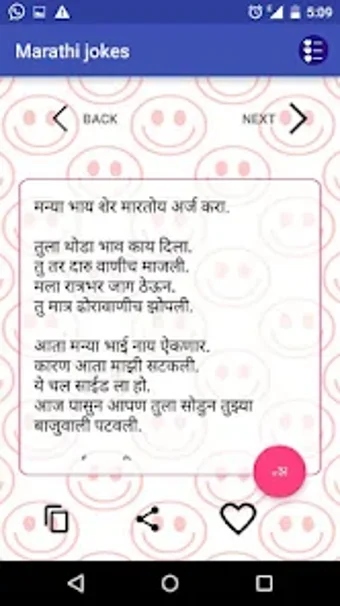 5:09
Marathi jokes
BACK NEXT
मन्या भाय शेर मारतोय अर्ज करा.
तुला थोडा भाव काय दिला.
तु तर दारु वाणीच माजली.
मला रात्रभर जाग ठेऊन.
तु मात्र ढोरावाणीच झोपली.
आता मन्या भाई नाय ऐकणार.
कारण आता माझी सटकली.
ये चल साईड ला हो.
आज पासुन आपण तुला सोडुन तुझ्या
बाजुवाली पटवली.